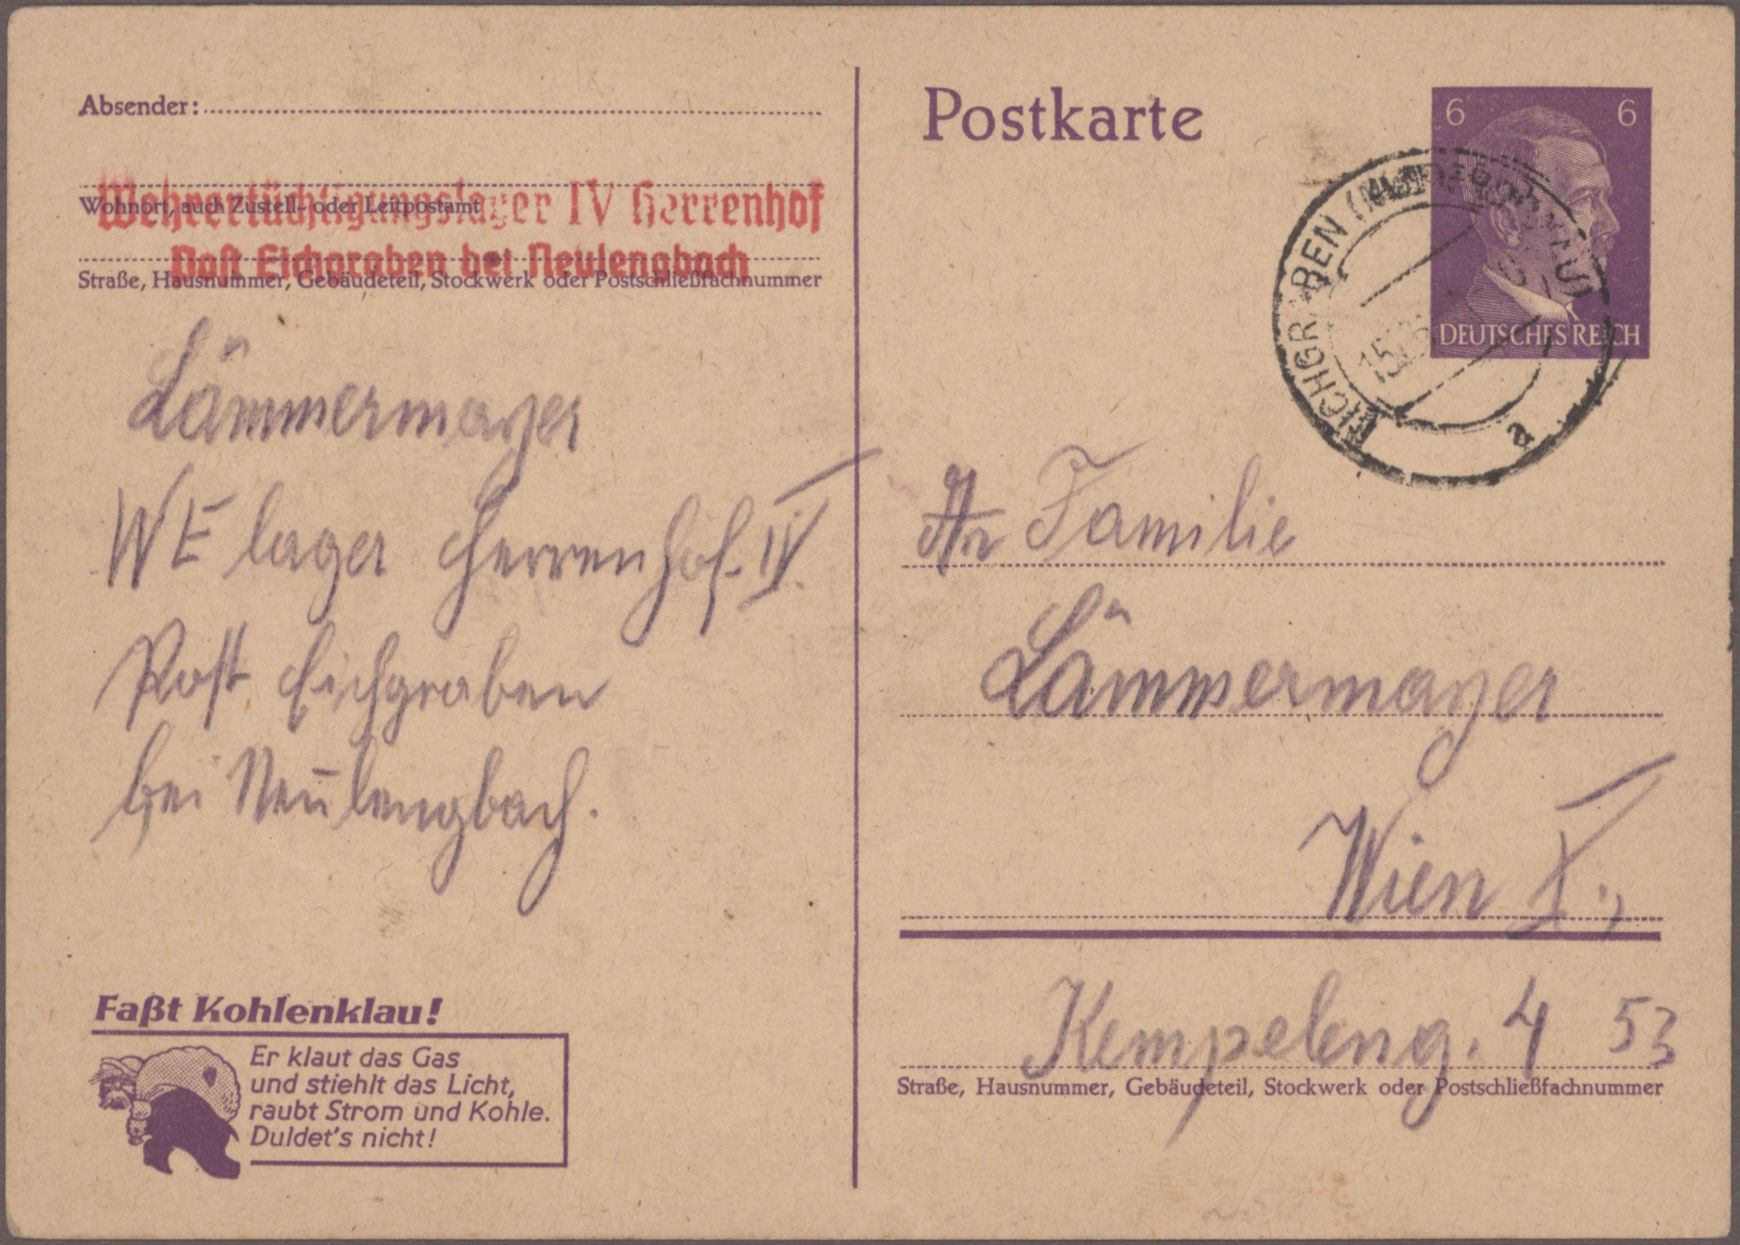 Absender:
Wehrertüchtigungslager IV Herrenhof
Wohnort, auch Zustell- oder Leitpostamt
Post Eichgraben bei Neulengbach
Straße, Hausnummer, Gebäudeteil, Stockwerk oder Postschließfachnummer
Lämmermayer
WE lager Herrenhof IV.
Post Eichgraben
bei Neulengbach.
Faßt Kohlenklau!
Er klaut das Gas
und stiehlt das Licht,
raubt Strom und Kohle.
Duldet's nicht!
Postkarte
6 6
DEUTSCHES REICH
EICHGRABEN
15
a
An Familie
Lämmermayer
Wien X.,
Kempeleng. 4 53
Straße, Hausnummer, Gebäudeteil, Stockwerk oder Postschließfachnummer